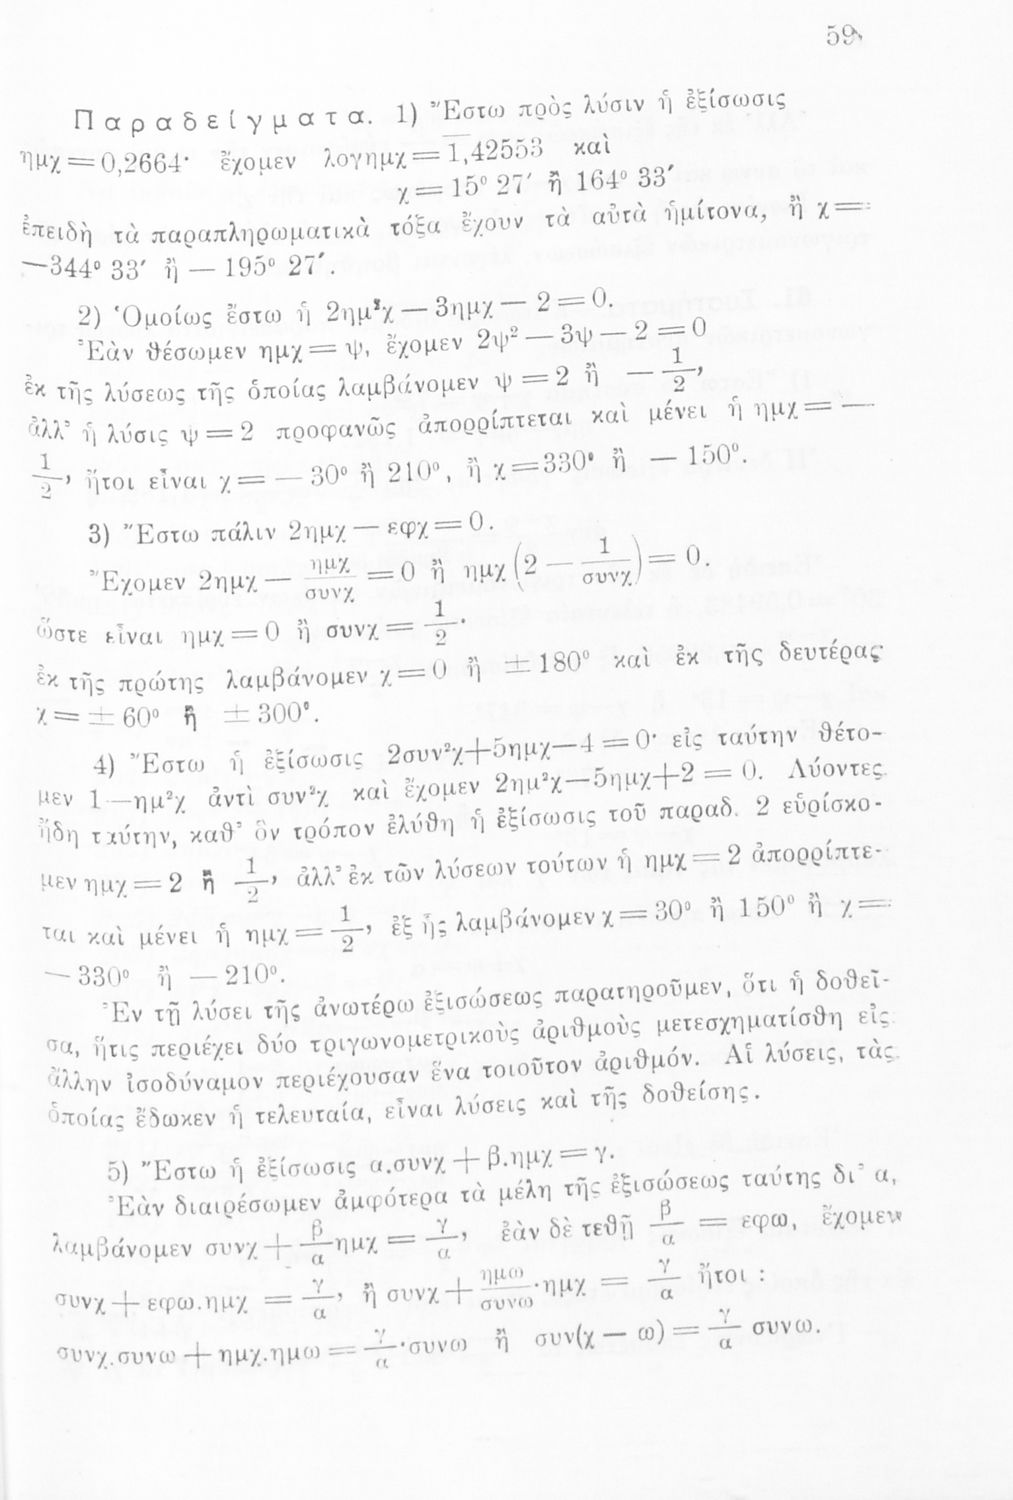 59
Παραδείγματα. 1) Ἔστω πρὸς λύσιν ἡ ἐξίσωσις
ημχ = 0,2664· ἔχομεν λογημχ = 1̅,42553 καὶ
χ = 15° 27′ ἢ 164° 33′
ἐπειδὴ τὰ παραπληρωματικὰ τόξα ἔχουν τὰ αὐτὰ ἡμίτονα, ἢ χ =
—344° 33′ ἢ — 195° 27′.
2) Ὁμοίως ἔστω ἡ 2ημ²χ — 3ημχ — 2 = 0.
Ἐὰν θέσωμεν ημχ = ψ, ἔχομεν 2ψ² — 3ψ — 2 = 0
ἐκ τῆς λύσεως τῆς ὁποίας λαμβάνομεν ψ = 2 ἢ — 1/2,
ἀλλ' ἡ λύσις ψ = 2 προφανῶς ἀπορρίπτεται καὶ μένει ἡ ημχ = —
1/2, ἤτοι εἶναι χ = — 30° ἢ 210°, ἢ χ = 330° ἢ — 150°.
3) Ἔστω πάλιν 2ημχ — εφχ = 0.
Ἔχομεν 2ημχ — ημχ/συνχ = 0 ἢ ημχ (2 — 1/συνχ) = 0.
ὥστε εἶναι ημχ = 0 ἢ συνχ = 1/2·
ἐκ τῆς πρώτης λαμβάνομεν χ = 0 ἢ ± 180° καὶ ἐκ τῆς δευτέρας
χ = ± 60° ἢ ± 300°.
4) Ἔστω ἡ ἐξίσωσις 2συν²χ+5ημχ—4 = 0· εἰς ταύτην θέτο-
μεν 1 —ημ²χ ἀντὶ συν²χ καὶ ἔχομεν 2ημ²χ—5ημχ+2 = 0. Λύοντες
ἤδη ταύτην, καθ' ὃν τρόπον ἐλύθη ἡ ἐξίσωσις τοῦ παραδ. 2 εὑρίσκο-
μεν ημχ = 2 ἢ 1/2, ἀλλ' ἐκ τῶν λύσεων τούτων ἡ ημχ = 2 ἀπορρίπτε-
ται καὶ μένει ἡ ημχ = 1/2, ἐξ ἧς λαμβάνομεν χ = 30° ἢ 150° ἢ χ =
— 330° ἢ — 210°.
Ἐν τῇ λύσει τῆς ἀνωτέρω ἐξισώσεως παρατηροῦμεν, ὅτι ἡ δοθεῖ-
σα, ἥτις περιέχει δύο τριγωνομετρικοὺς ἀριθμοὺς μετεσχηματίσθη εἰς
ἄλλην ἰσοδύναμον περιέχουσαν ἕνα τοιοῦτον ἀριθμόν. Αἱ λύσεις, τὰς
ὁποίας ἔδωκεν ἡ τελευταία, εἶναι λύσεις καὶ τῆς δοθείσης.
5) Ἔστω ἡ ἐξίσωσις α.συνχ + β.ημχ = γ.
Ἐὰν διαιρέσωμεν ἀμφότερα τὰ μέλη τῆς ἐξισώσεως ταύτης δι' α,
λαμβάνομεν συνχ + β/α ημχ = γ/α, ἐὰν δὲ τεθῇ β/α = εφω, ἔχομεν
συνχ + εφω.ημχ = γ/α, ἢ συνχ + ημω/συνω·ημχ = γ/α ἤτοι :
συνχ.συνω + ημχ.ημω = γ/α·συνω ἢ συν(χ — ω) = γ/α συνω.